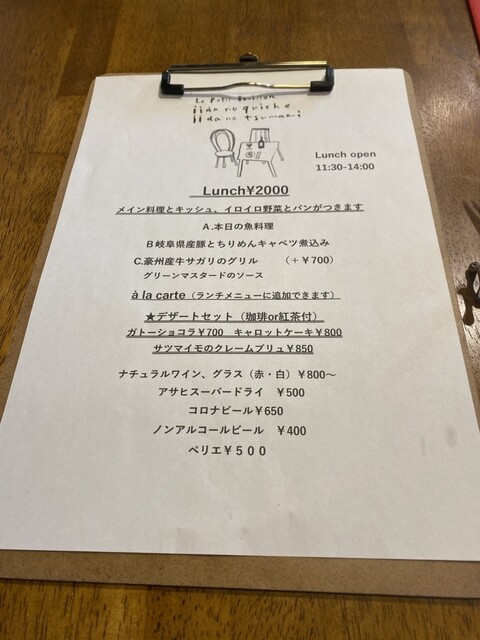 Le Petit Bouillon
iida no quiche
iida no tsumami
Lunch open
11:30-14:00
Lunch¥2000
メイン料理とキッシュ、イロイロ野菜とパンがつきます
A.本日の魚料理
B岐阜県産豚とちりめんキャベツ煮込み
C.豪州産牛サガリのグリル (+¥700)
グリーンマスタードのソース
à la carte (ランチメニューに追加できます)
★デザートセット (珈琲or紅茶付)
ガトーショコラ¥700 キャロットケーキ¥800
サツマイモのクレームブリュ¥850
ナチュラルワイン、グラス (赤・白) ¥800~
アサヒスーパードライ ¥500
コロナビール¥650
ノンアルコールビール ¥400
ペリエ¥500